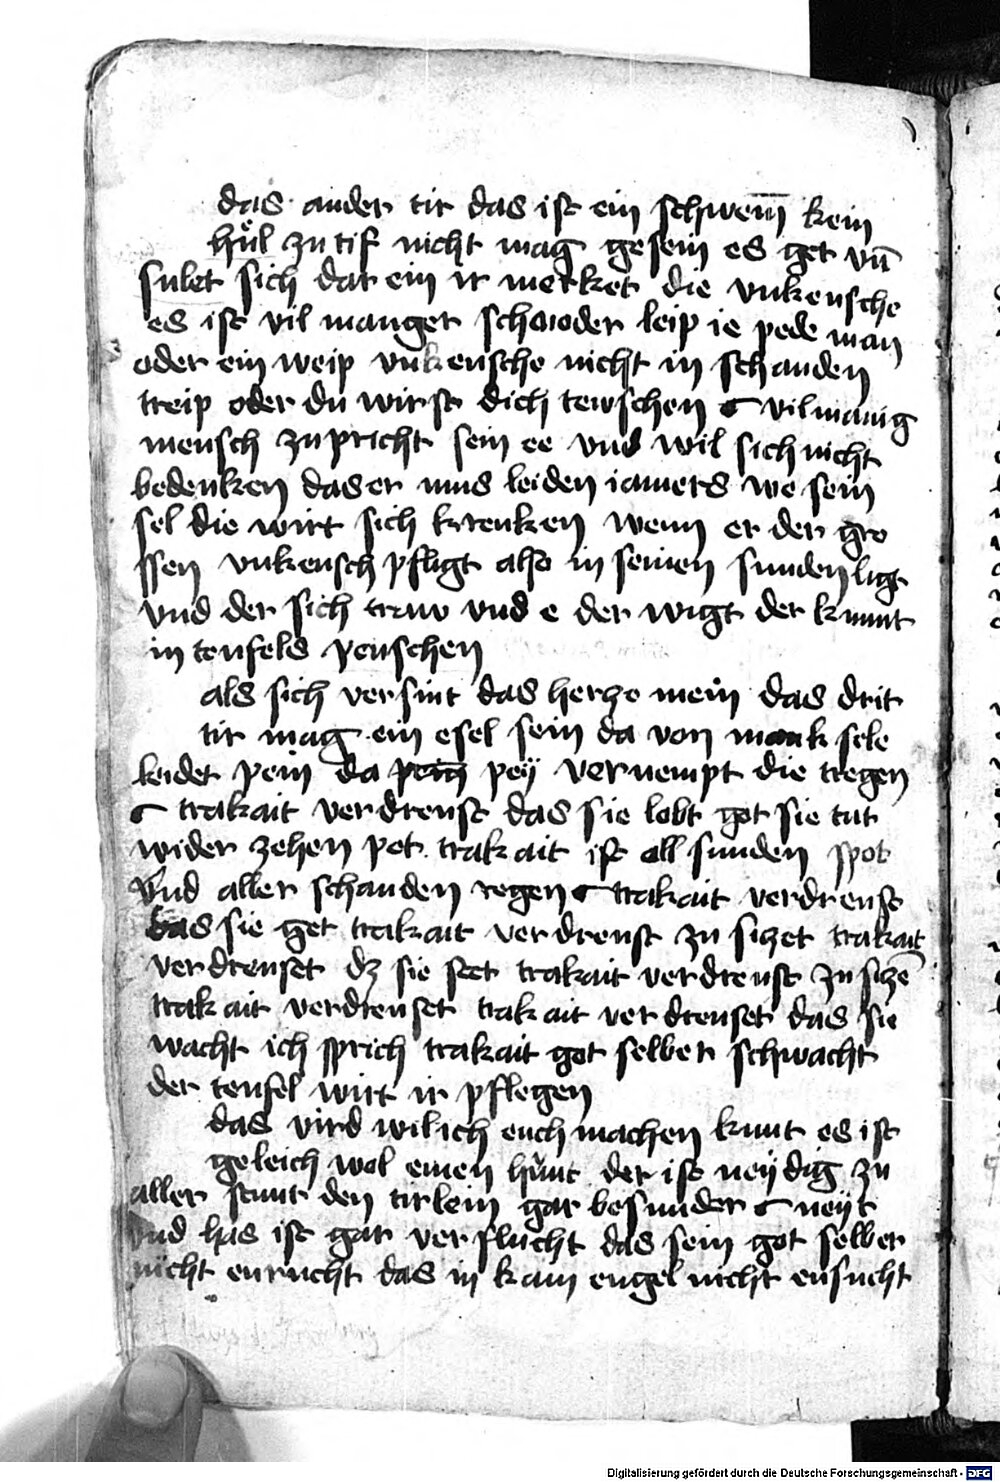 das ander tir das ist ein schwein̄ kein
hül zu tif nicht mag gesein es get vn̄
sulet sich dar ein ir merket die vnkeusche
es ist vil manger schnoder leip ie pede man
oder ein weip vnkeusche nicht in schanden
treip oder du wirst dich tewschen vil manig
mensch zu pricht sein ee vnd wil sich nicht
bedenken das er mus leiden iamers we sein
sel die wirt sich krenken wenn er der gro
ssen vnkeusch pfligt also in seinen sunden ligt
vnd der sich traw vnd e der wigt der kumt
in teufels peuschen
als sich versint das hercze mein das drit
tir mag ein esel sein da von mank sele
leidet pein da pey vernempt die tregen
trakait verdreust das sie lobt got sie tut
wider zehen pot trakait ist all sunden spot
vnd aller schanden regen trakait verdreust
das sie get trakait verdreust zu siczet trakait
verdreuset dz sie stet trakait verdreust zu siczē
trakait verdreuset trakait verdreuset das sie
wacht ich sprich trakait got selber schwacht
der teufel wirt ir pflegen
das vird wil ich euch machen kunt es ist
geleich wol einen hunt der ist neydig zu
aller stunt den tirlein gar besunder neyt
vnd has ist gar verflucht das sein got selber
nicht enrucht das in kain engel nicht ensucht
Digitalisierung gefördert durch die Deutsche Forschungsgemeinschaft - DFG